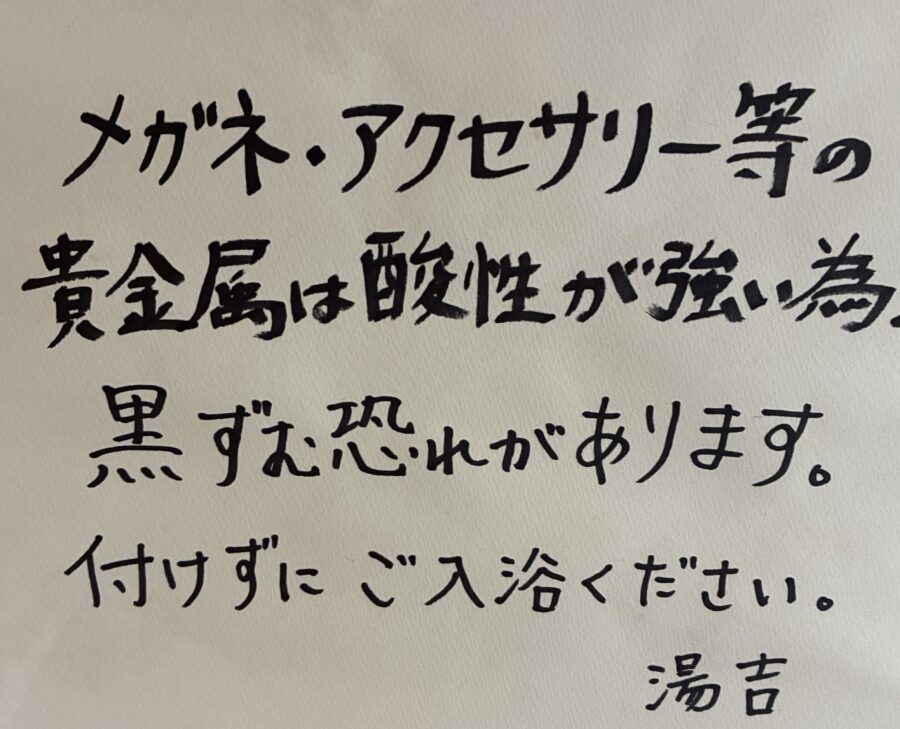 メガネ・アクセサリー等の
貴金属は酸性が強い為、
黒ずむ恐れがあります。
付けずにご入浴ください。
湯吉